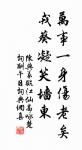 萬事一身傷老矣
戎葵凝笑墻東
陳與義臨江仙高詠楚
詞酬午日詞典網書